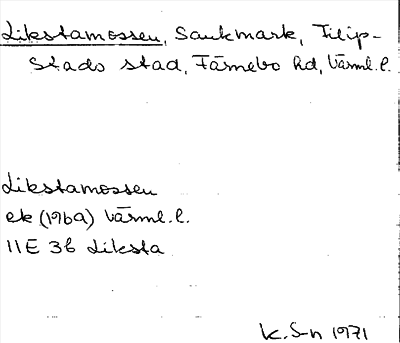 Likstamossen, Sankmark, Filip-
stads stad, Färnebo hd, Värml. l.
Likstamossen
ek (1969) Värml. l.
11E 3b Liksta
K. S-n 1971